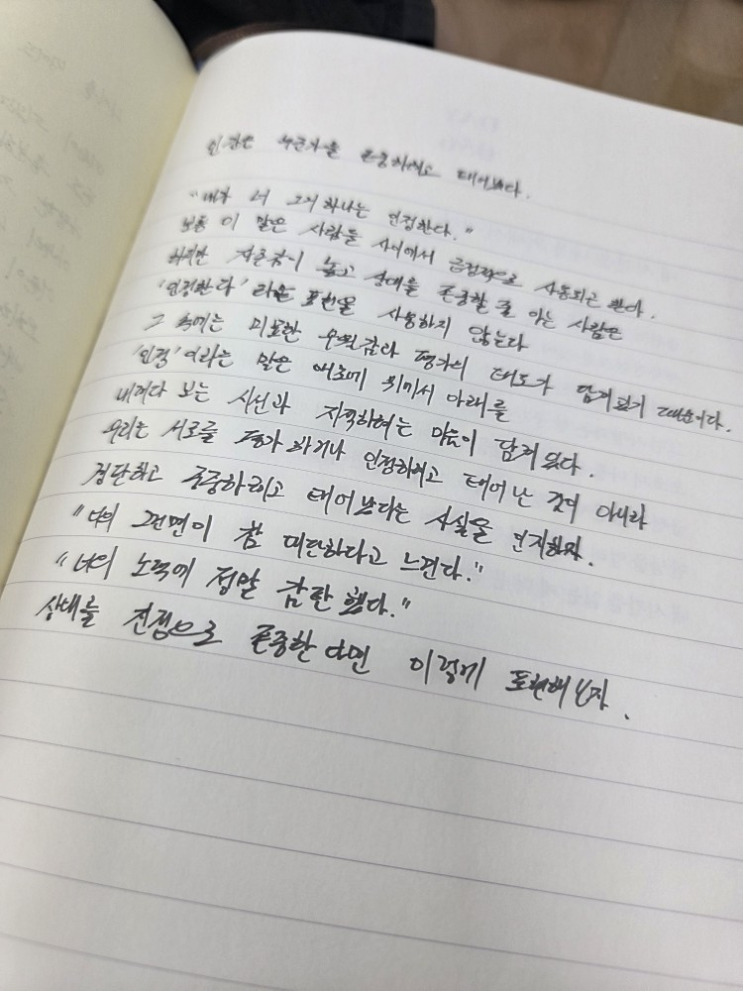 인간은 누군가를 존중하려고 태어났다.
"내가 너 그거 하나는 인정한다."
보통 이 말은 사람들 사이에서 긍정적으로 사용되곤 한다.
하지만 자존감이 높고 상대를 존중할 줄 아는 사람은
'인정한다' 라는 표현을 사용하지 않는다
그 속에는 미묘한 우월감과 평가의 태도가 담겨있기 때문이다.
'인정' 이라는 말은 애초에 위에서 아래를
내려다 보는 시선과 지적하려는 마음이 담겨 있다.
우리는 서로를 평가하거나 인정하려고 태어난 것이 아니라
감탄하고 존중하려고 태어났다는 사실을 인지하자.
"너의 그런면이 참 대단하다고 느낀다."
"너의 노력에 정말 감탄했다."
상대를 진정으로 존중한다면 이렇게 표현해보자.